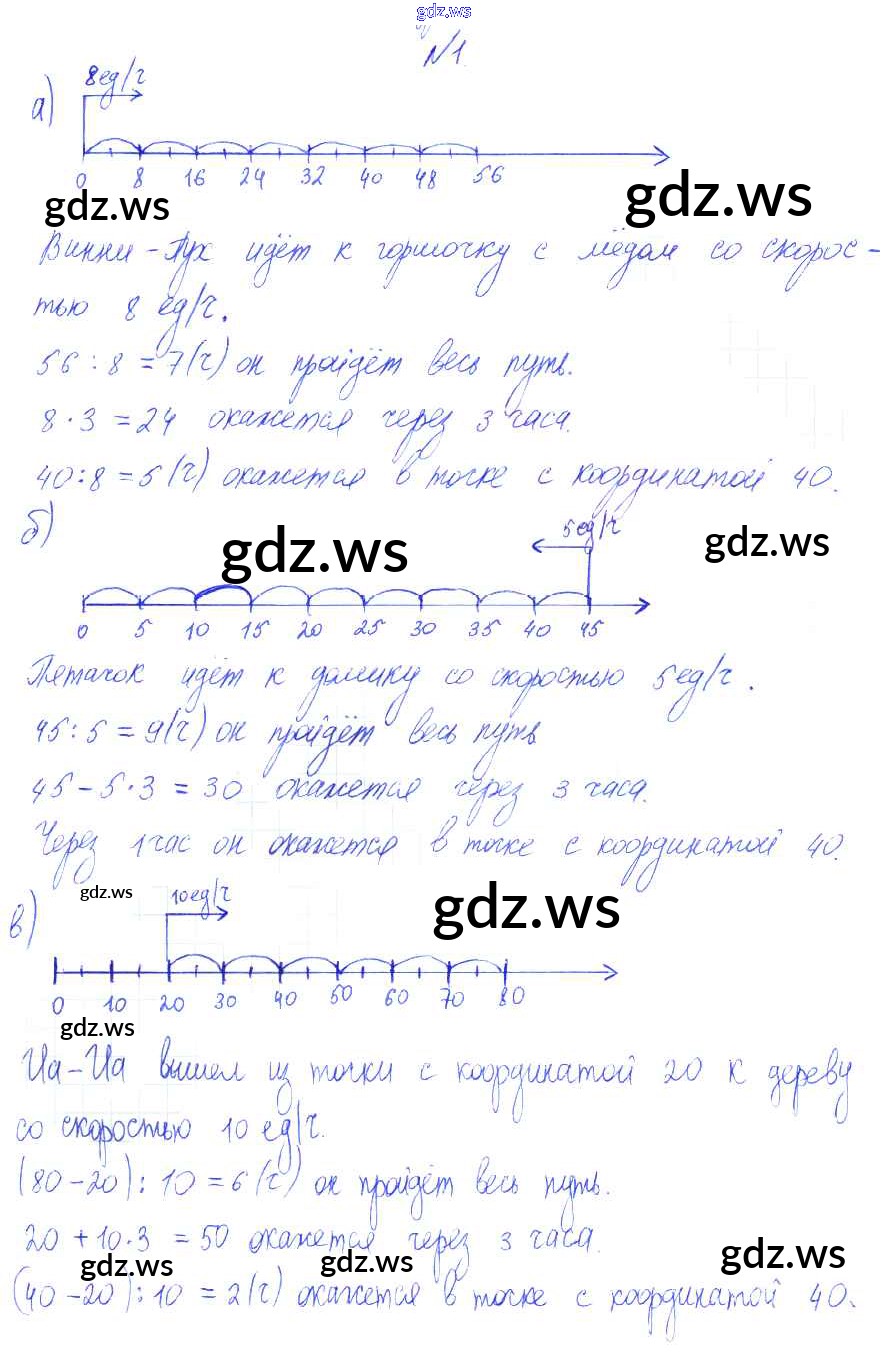 gdz.ws
№1.
а)
8ед/ч
0 8 16 24 32 40 48 56
gdz.ws
gdz.ws
Винни-Пух идёт к горшочку с мёдом со скорос-
тью 8 ед/ч.
56 : 8 = 7(ч) он пройдёт весь путь.
8 · 3 = 24 окажется через 3 часа.
40:8 = 5(ч) окажется в точке с координатой 40.
б)
5ед/ч
gdz.ws
gdz.ws
0 5 10 15 20 25 30 35 40 45
Пятачок идёт к домику со скоростью 5ед/ч.
45:5 = 9(ч) он пройдёт весь путь
45 - 5·3 = 30 окажется через 3 часа.
Через 1 час он окажется в точке с координатой 40.
gdz.ws
10ед/ч
gdz.ws
в)
0 10 20 30 40 50 60 70 80
gdz.ws
Иа-Иа вышел из точки с координатой 20 к дереву
со скоростью 10 ед/ч.
(80-20): 10 = 6(ч) он пройдёт весь путь.
20 + 10·3 = 50 окажется через 3 часа.
gdz.ws
gdz.ws
gdz.ws
(40-20):10 = 2(ч) окажется в точке с координатой 40.